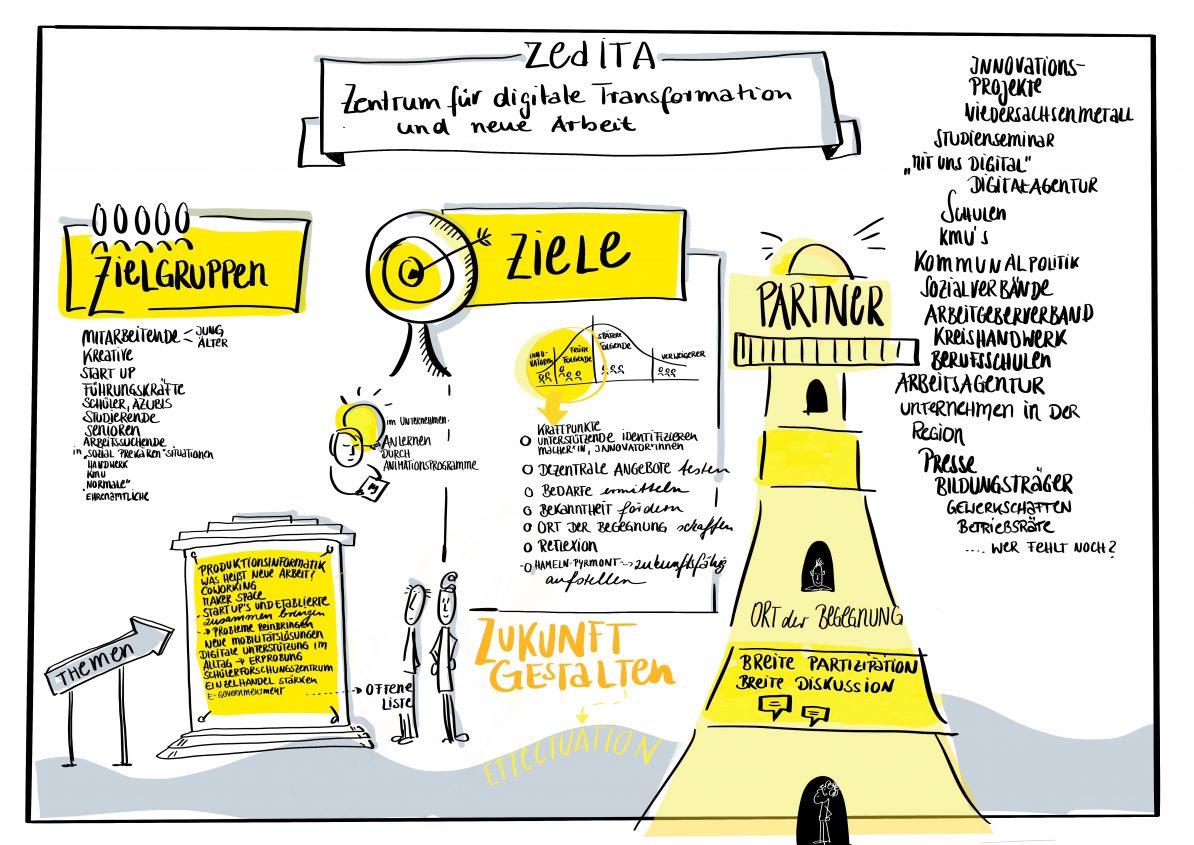 ZedITA
Zentrum für digitale Transformation
und neue Arbeit
ZIELGRUPPEN
MITARBEITENDE < JUNG
ÄLTER
KREATIVE
START UP
FÜHRUNGSKRÄFTE
SCHÜLER, AZUBIS
STUDIERENDE
SENIOREN
ARBEITSSUCHENDE
in "SOZIAL PREKÄREN" SITUATIONEN
HANDWERK
KMU
"NORMALE"
EHRENAMTLICHE
ZIELE
INNO-
VATOREN
FRÜHE
FOLGENDE
SPÄTER
FOLGENDE
VERWEIGERER
im UNTERNEHMEN:
ANLERNEN
DURCH
ANIMATIONSPROGRAMME
KRAFTPUNKTE
UNTERSTÜTZENDE IDENTIFIZIEREN
MACHER*IN, INNOVATOR*INNEN
DEZENTRALE ANGEBOTE testen
BEDARFE ermitteln
BEKANNTHEIT fördern
ORT DER BEGEGNUNG schaffen
REFLEXION
HAMELN-PYRMONT → zukunftsfähig
aufstellen
THEMEN
PRODUKTIONSINFORMATIK
WAS HEIßT NEUE ARBEIT?
COWORKING
MAKER SPACE
START UP'S UND ETABLIERTE
zusammen bringen
→ PROBLEME REINBRINGEN
NEUE MOBILITÄTSLÖSUNGEN
DIGITALE UNTERSTÜTZUNG IM
ALLTAG → ERPROBUNG
SCHÜLERFORSCHUNGSZENTRUM
EINZELHANDEL STÄRKEN
E-GOVERNMENT
OFFENE
LISTE
ZUKUNFT
GESTALTEN
EFFECTUATION
PARTNER
ORT der BEGEGNUNG
BREITE PARTIZIPATION
BREITE DISKUSSION
INNOVATIONS-
PROJEKTE
NIEDERSACHSENMETALL
STUDIENSEMINAR
"MIT UNS DIGITAL"
DIGITALAGENTUR
SCHULEN
KMU'S
KOMMUNALPOLITIK
SOZIALVERBÄNDE
ARBEITGEBERVERBAND
KREISHANDWERK
BERUFSSCHULEN
ARBEITSAGENTUR
UNTERNEHMEN IN DER
REGION
PRESSE
BILDUNGSTRÄGER
GEWERKSCHAFTEN
BETRIEBSRÄTE
.... WER FEHLT NOCH?